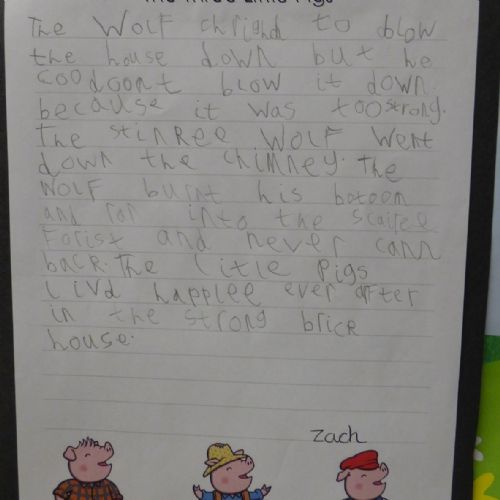 The Three Little Pigs
The WOLF chrighd to blow
the house down but he
coodoont blow it down
because it was toostrong.
The stinree WOLF went
down the chimney. The
WOLF burnt his botoom
and ran into the scairee
Forist and never cam
back. The litle pigs
livd happlee ever after
in the strong brice
house.
zach